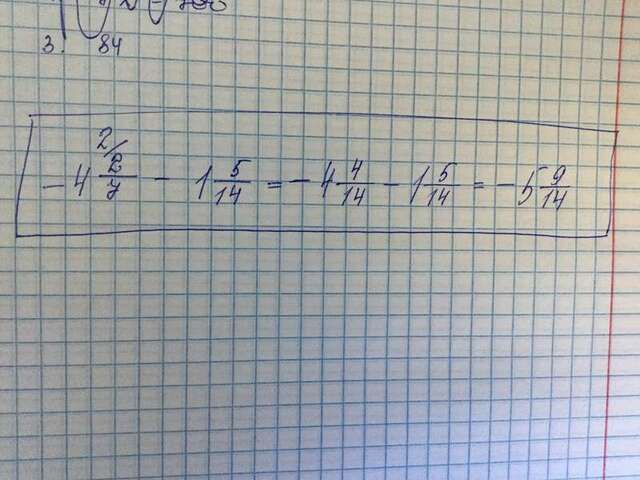 3. 84
- 4 2/ 2/7 - 1 5/14 = - 4 4/14 - 1 5/14 = - 5 9/14